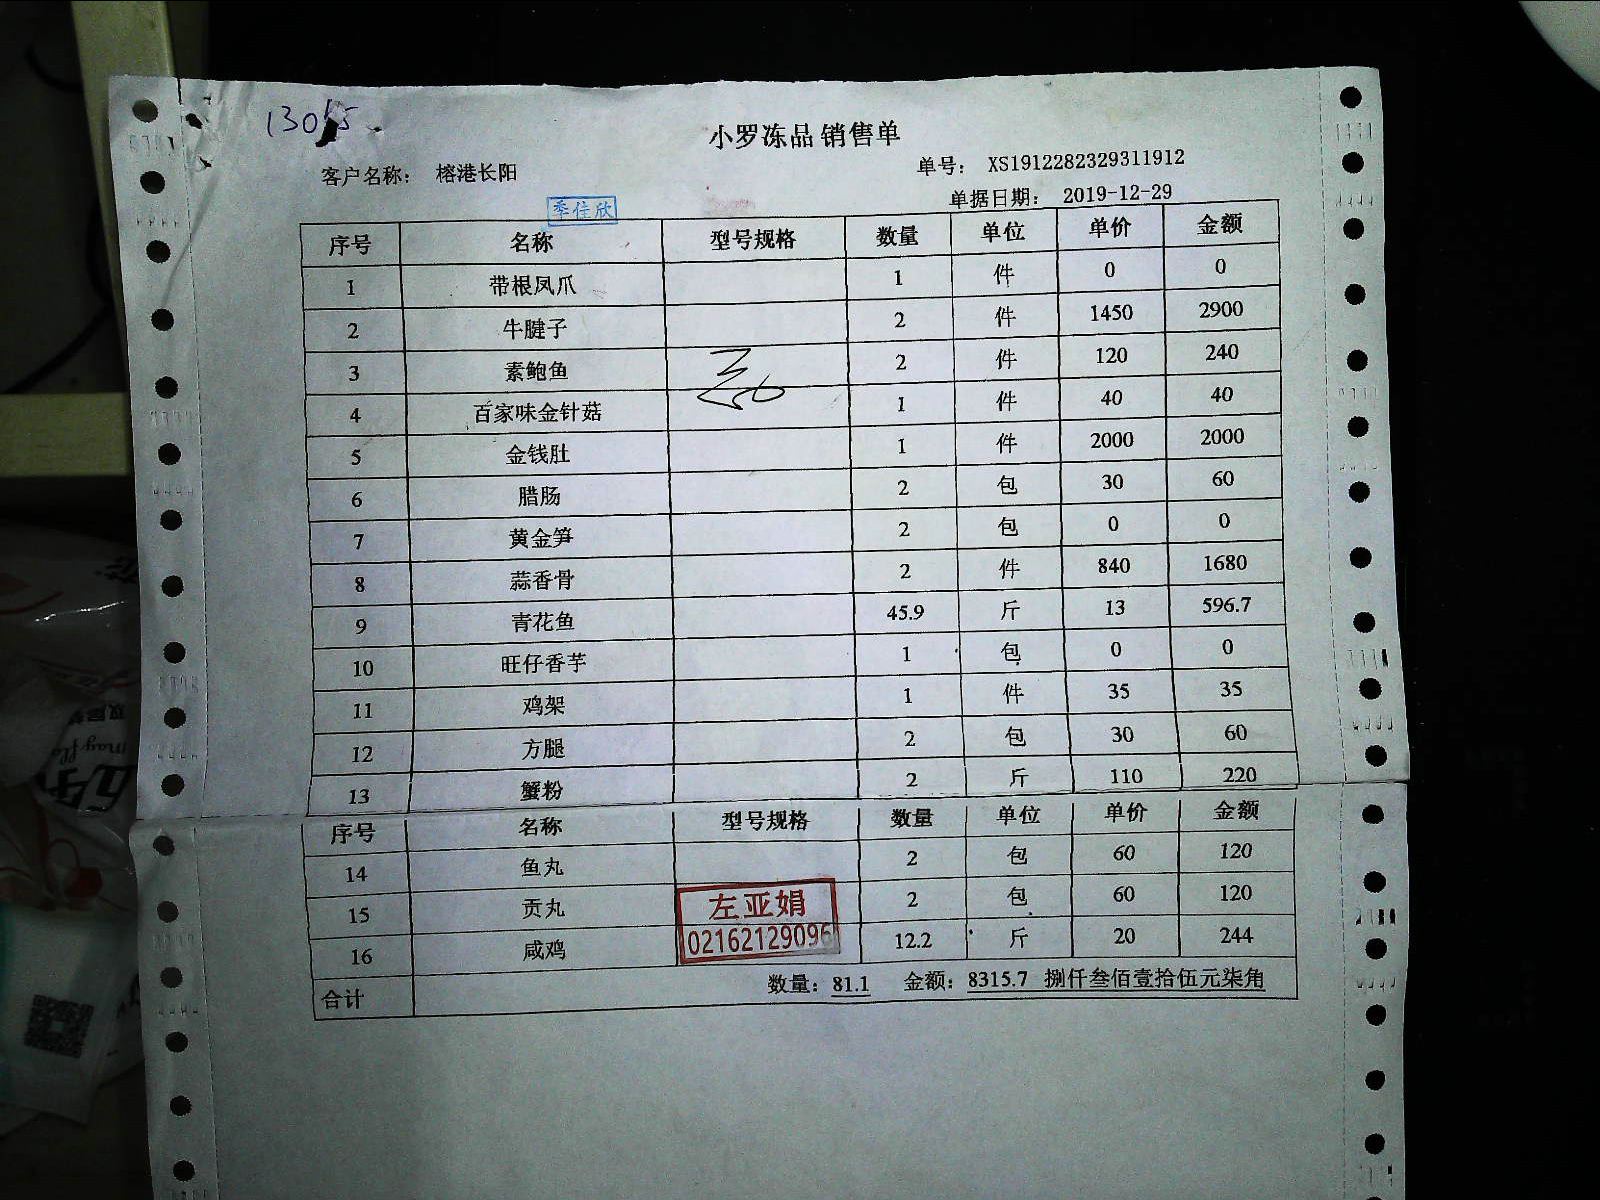 13015
小罗冻品 销售单
客户名称： 榕港长阳 单号： XS1912282329311912
单据日期： 2019-12-29
季佳欣
序号 名称 型号规格 数量 单位 单价 金额
1 带根凤爪 1 件 0 0
2 牛腱子 2 件 1450 2900
3 素鲍鱼 2 件 120 240
4 百家味金针菇 1 件 40 40
5 金钱肚 1 件 2000 2000
6 腊肠 2 包 30 60
7 黄金笋 2 包 0 0
8 蒜香骨 2 件 840 1680
9 青花鱼 45.9 斤 13 596.7
10 旺仔香芋 1 包 0 0
11 鸡架 1 件 35 35
12 方腿 2 包 30 60
13 蟹粉 2 斤 110 220
序号 名称 型号规格 数量 单位 单价 金额
14 鱼丸 2 包 60 120
15 贡丸 2 包 60 120
16 咸鸡 12.2 斤 20 244
左亚娟
02162129096
合计 数量：81.1 金额：8315.7 捌仟叁佰壹拾伍元柒角